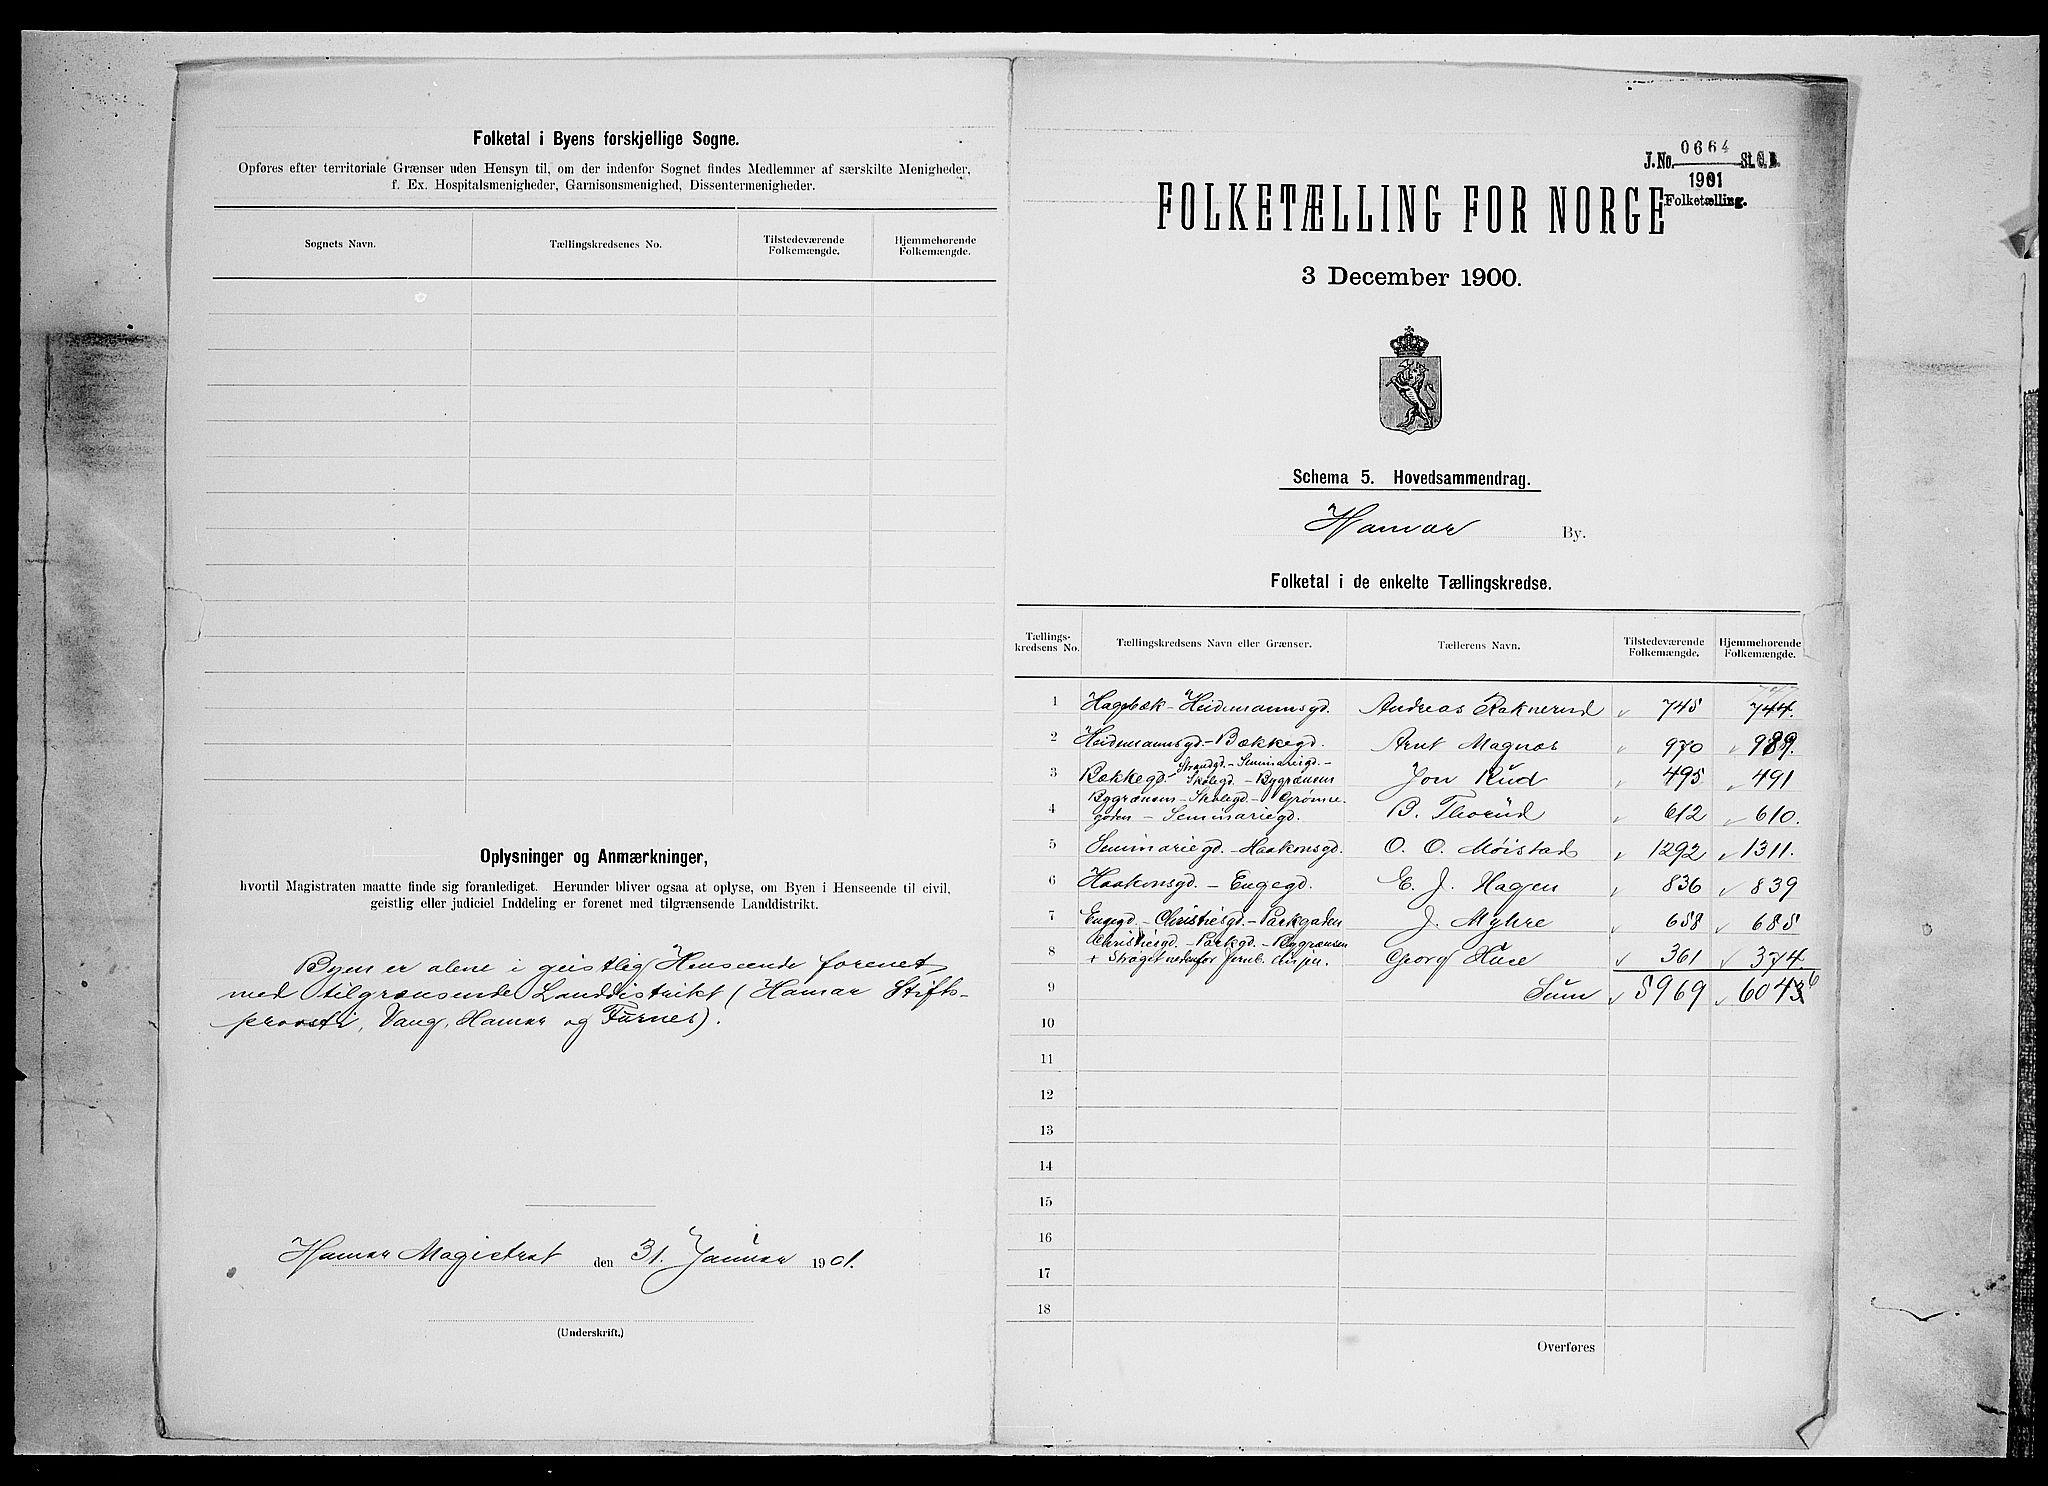 Folketal i Byens forskjellige Sogne.
Opføres efter territoriale Grænser uden Hensyn til, om der indenfor Sognet findes Medlemmer af særskilte Menigheder,
f. Ex. Hospitalsmenigheder, Garnisonsmenighed, Dissentermenigheder.
Sognets Navn. Tællingskredsenes No. Tilstedeværende Folkemængde. Hjemmehørende Folkemængde.
Oplysninger og Anmærkninger,
hvortil Magistraten maatte finde sig foranlediget. Herunder bliver ogsaa at oplyse, om Byen i Henseende til civil,
geistlig eller judiciel Inddeling er forenet med tilgrænsende Landdistrikt.
Byen er alene i geistlig Henseende forenet
med tilgrænsende Landdistrikt (Hamar Stifts-
provsti, Vang, Hamar og Furnes).
Hamar Magistrat den 31. Januar 1901.
(Underskrift.)
J. No. 0664 St. C. B.
1901
Folketælling.
FOLKETÆLLING FOR NORGE
3 December 1900.
Schema 5. Hovedsammendrag.
Hamar By.
Folketal i de enkelte Tællingskredse.
Tællings-kredsens No. Tællingskredsens Navn eller Grænser. Tællerens Navn. Tilstedeværende Folkemængde. Hjemmehørende Folkemængde.
747
1 Hagebæk - Heidemannsgd. Andreas Raknerud 745 744.
2 Heidemannsgd. - Bækkegd. Arnt Magnæs 970 989.
Strandgd. - Seminariegd. -
3 Bækkegd. - Skolegd. - Bygrænsen Jon Rud 495 491
Bygrænsen - Skolegd. - Grønne-
4 gaden - Seminariegd. B. Thorud 612 610.
5 Seminariegd. - Haakonsgd. O. O. Møistad 1292 1311.
6 Haakonsgd. - Engegd. E. J. Hagen 836 839
7 Engegd. - Christiesgd. - Parkgaden J. Myhre 658 685
Christiesgd. - Parkgd. - Bygrænsen
8 + Strøget nedenfor Jernb. linjen. Georg 361 374.
9 Sum 5969 6043 6
10
11
12
13
14
15
16
17
18
Overføres